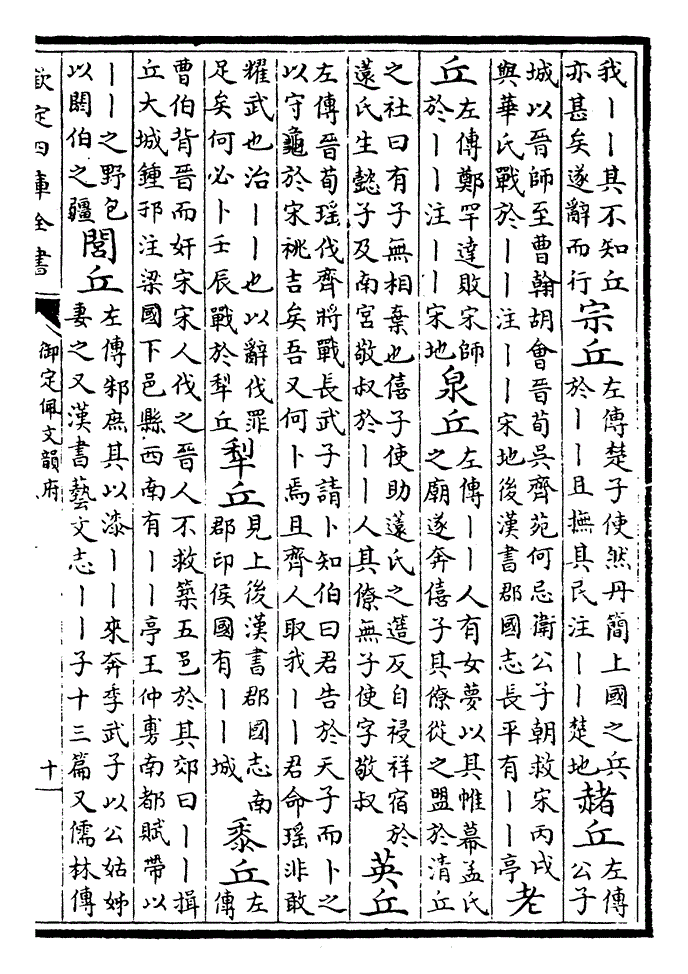 我丨丨其不知丘
亦甚矣遂辭而行
宗丘
左傳楚子使然丹簡上國之兵
於丨丨且撫其民注丨丨楚地
赭丘
左傳
公子
城以晉師至曹翰胡會晉荀吳齊苑何忌衛公子朝救宋丙戌
與華氏戰於丨丨注丨丨宋地後漢書郡國志長平有丨丨亭
老
丘
左傳鄭罕達敗宋師
於丨丨注丨丨宋地
泉丘
左傳丨丨人有女夢以其帷幕孟氏
之廟遂奔僖子其僚從之盟於清丘
之社曰有子無相棄也僖子使助薳氏之簉反自祲祥宿於
薳氏生懿子及南宮敬叔於丨丨人其僚無子使字敬叔
英丘
左傳晉荀瑶伐齊將戰長武子請卜知伯曰君告於天子而卜之
以守龜於宋祧吉矣吾又何卜焉且齊人取我丨丨君命瑶非敢
耀武也治丨丨也以辭伐罪
足矣何必卜壬辰戰於犁丘
犂丘
見上後漢書郡國志南
郡印侯國有丨丨城
黍丘
左
傳
曹伯背晉而奸宋宋人伐之晉人不救築五邑於其郊曰丨丨揖
丘大城鍾邗注梁國下邑縣西南有丨丨亭王仲旉南都賦帶以
丨丨之野包
以閼伯之疆
閭丘
左傳邾庶其以漆丨丨來奔季武子以公姑姊
妻之又漢書藝文志丨丨子十三篇又儒林傳
欽定四庫全書
御定佩文韻府
十